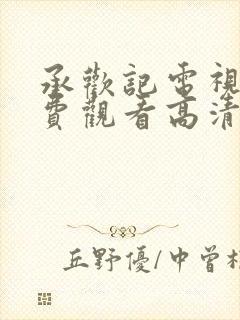 承歡記電視
費觀看高清
丘野優/中曾根